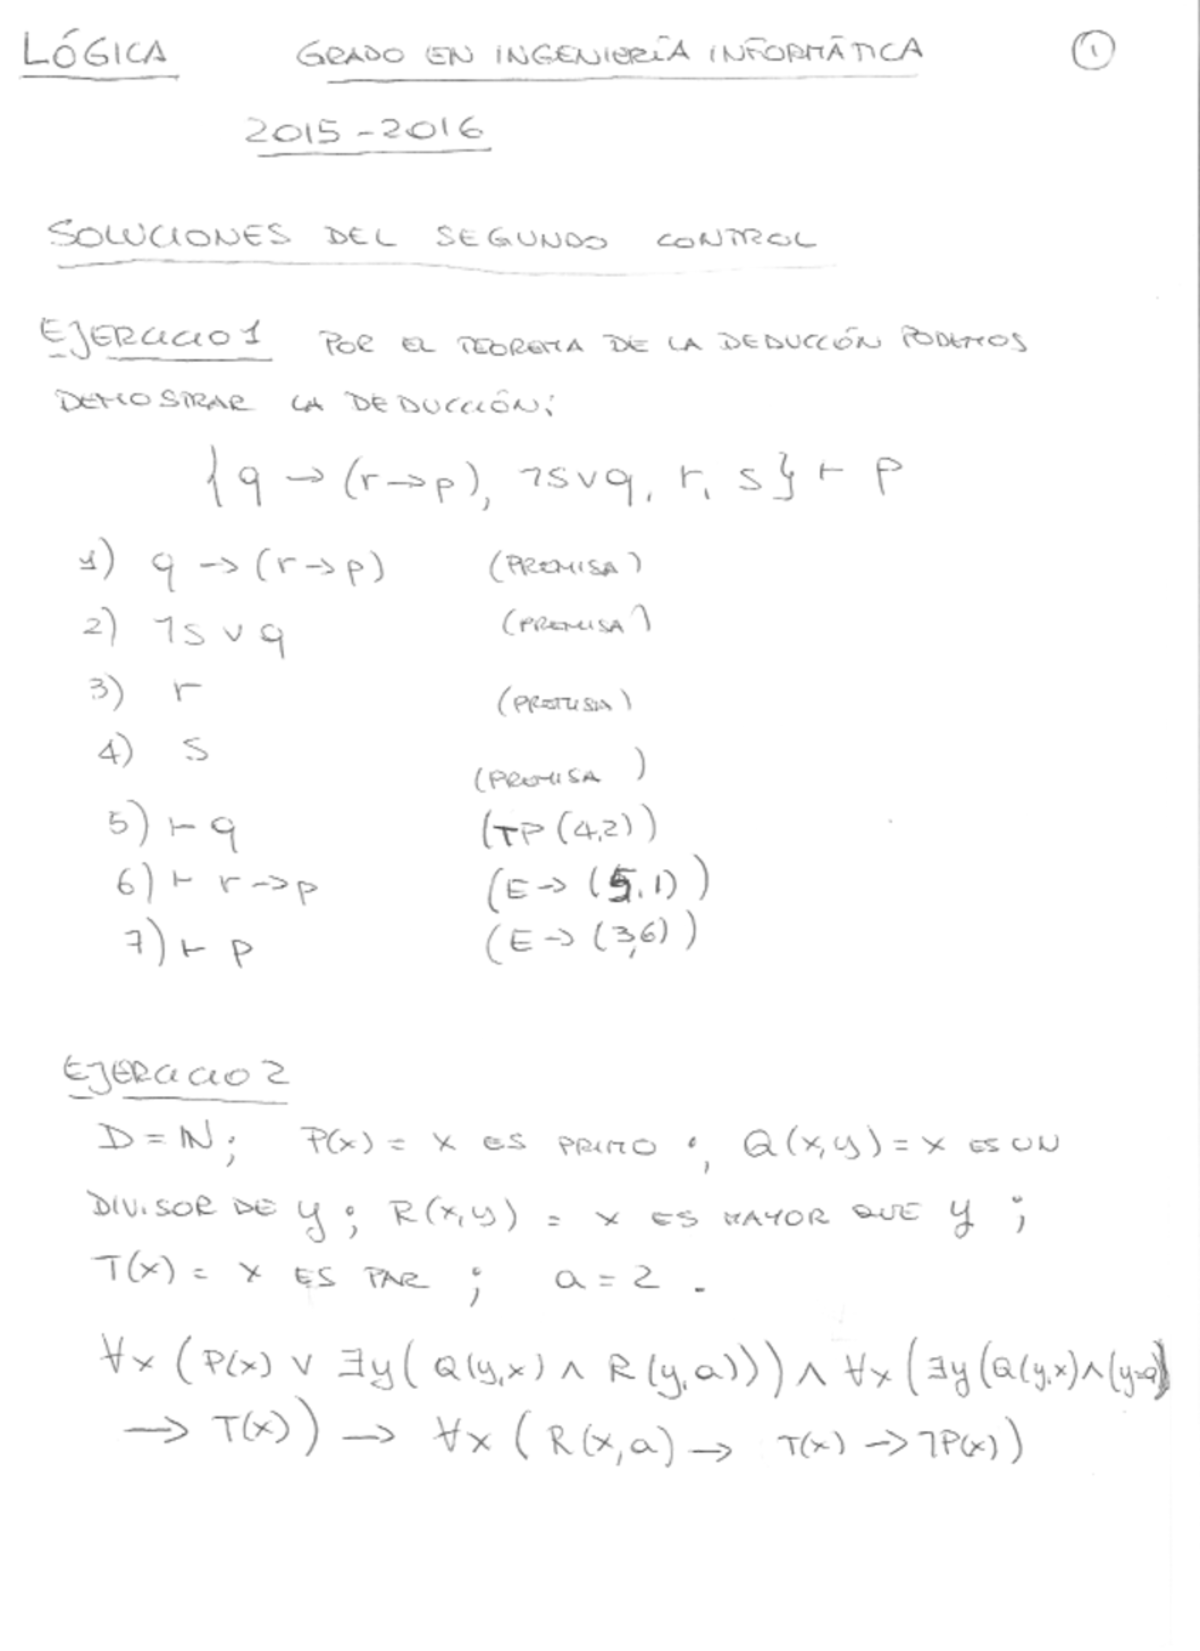 LÓGICA GRADO EN INGENIERÍA INFORMÁTICA 1
2015-2016
SOLUCIONES DEL SEGUNDO CONTROL
EJERCICIO 1 POR EL TEOREMA DE LA DEDUCCIÓN PODEMOS
DEMOSTRAR LA DEDUCCIÓN:
{q → (r→p), ¬s∨q, r, s} ⊢ p
1) q → (r→p) (PREMISA)
2) ¬s ∨ q (PREMISA)
3) r (PREMISA)
4) s (PREMISA)
5) ⊢ q (TP (4,2))
6) ⊢ r → p (E→ (5,1))
7) ⊢ p (E→ (3,6))
EJERCICIO 2
D = ℕ; P(x) = x ES PRIMO ; Q(x,y) = x ES UN
DIVISOR DE y ; R(x,y) = x ES MAYOR QUE y ;
T(x) = x ES PAR ; a = 2 .
∀x (P(x) ∨ ∃y(Q(y,x) ∧ R(y,a))) ∧ ∀x (∃y(Q(y,x)∧(y=a)
→ T(x)) → ∀x (R(x,a) → T(x) → ¬P(x))